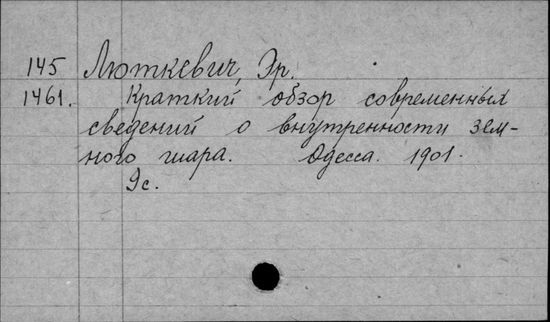 145 Люткевич, Эр.
1461. Краткий обзор современных
сведений о внутренности зем-
ного шара. Одесса. 1901.
9с.